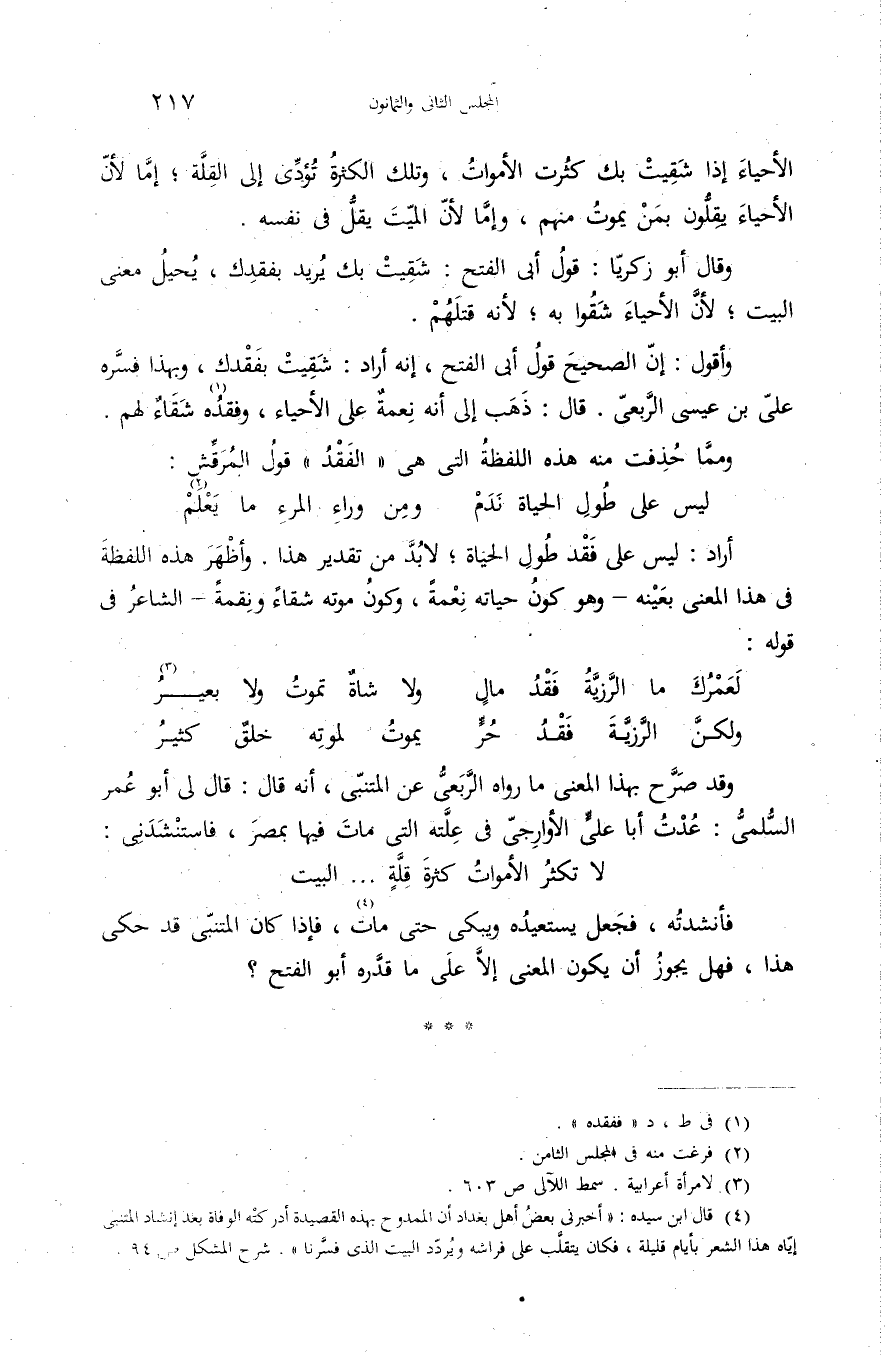 المجلس الثانى والثمانون ٢١٧
الأحياءَ إذا شَقِيتْ بك كثُرت الأمواتُ ، وتلك الكثرةُ تُؤدِّى إلى القِلَّة ؛ إمَّا لأنّ
الأحياءَ يقِلُّون بمَنْ يموتُ منهم ، وإمَّا لأنّ الميّتَ يقلُّ فى نفسه .
وقال أبو زكريّا : قولُ أبى الفتح : شَقِيتْ بك يُريد بفقدِك ، يُحيلُ معنى
البيت ؛ لأنَّ الأحياءَ شَقُوا به ؛ لأنه قتلَهُمْ .
وأقول : إنّ الصحيحَ قولُ أبى الفتح ، إنه أراد : شَقِيتْ بفَقْدك ، وبهذا فسَّره
علىّ بن عيسى الرَّبعىّ . قال : ذَهَب إلى أنه نِعمةٌ على الأحياء ، وفقدُه(١) شقَاءٌ لهم .
وممَّا حُذِفت منه هذه اللفظةُ التى هى « الفَقْدُ » قولُ المُرَقِّش :
ليس على طُولِ الحياة نَدَمْ ومِن وراءِ المرءِ ما يَعْلَمْ(٢)
أراد : ليس على فَقْد طُولِ الحياة ؛ لابُدَّ من تقدير هذا . وأظْهَرَ هذه اللفظةَ
فى هذا المعنى بعَيْنه – وهو كونُ حياته نِعْمةً ، وكونُ موته شقاءً ونِقمةً – الشاعرُ فى
قوله :
لَعَمْرُكَ ما الرَّزِيَّةُ فَقْدُ مالٍ ولا شاةٌ تموتُ ولا بعيـــرُ(٣)
ولكنَّ الرَّزِيَّةَ فَقْدُ حُرٍّ يموتُ لموتِه خلقٌ كثيرُ
وقد صَرَّح بهذا المعنى ما رواه الرَّبَعىُّ عن المتنبّى ، أنه قال : قال لى أبو عُمر
السُّلمىُّ : عُدْتُ أبا علىٍّ الأوارِجىّ فى عِلَّته التى ماتَ فيها بمصرَ ، فاستنْشَدَنِى :
لا تكثرُ الأمواتُ كثرةَ قِلَّةٍ ... البيت
فأنشدتُه ، فجَعل يستعيدُه ويبكى حتى مات(٤) ، فإذا كان المتنبّى قد حكى
هذا ، فهل يجوزُ أن يكون المعنى إلاَّ علَى ما قدَّره أبو الفتح ؟
* * *
(١) فى ط ، د « ففقده » .
(٢) فرغت منه فى المجلس الثامن .
(٣) لامرأة أعرابية . سمط اللآلى ص ٦٠٣ .
(٤) قال ابن سيده : « أخبرنى بعضُ أهل بغداد أن الممدوح بهذه القصيدة أدركتْه الوفاة بعْد إنشاد المتنبى
إيّاه هذا الشعر بأيام قليلة ، فكان يتقلَّب على فراشه ويُردّد البيت الذى فسَّرنا » . شرح المشكل ص ٩٤ .